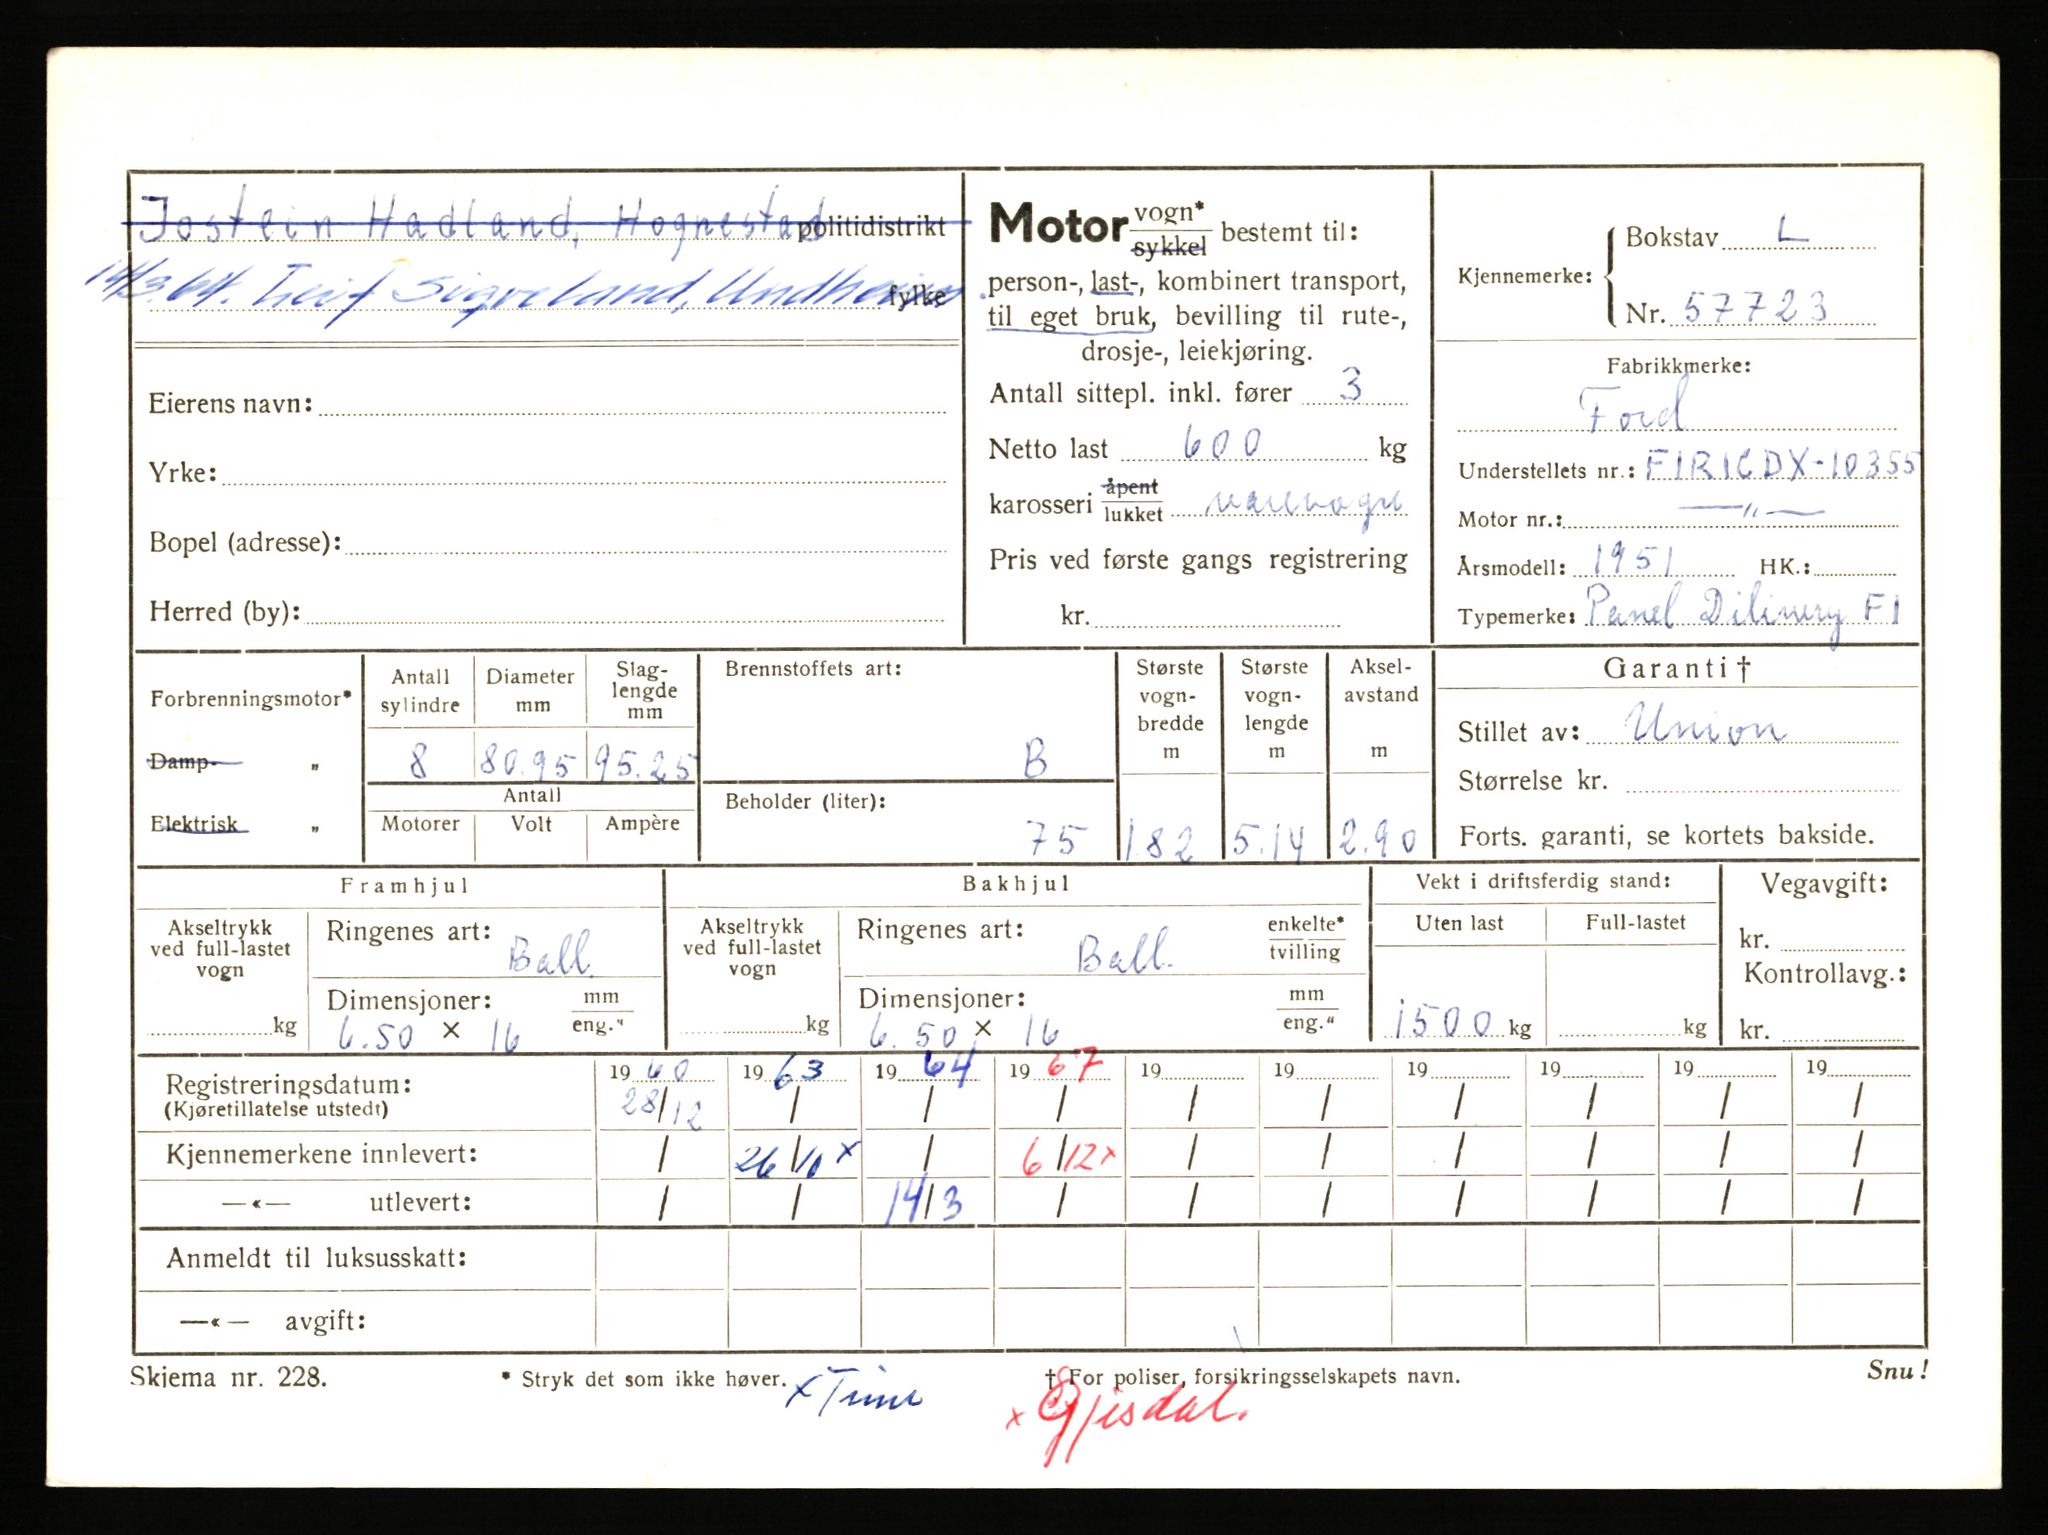 Jostein Hadland, Hognestad politidistrikt
14/3.64. Leif Sigveland, Undheim. fylke
Eierens navn:
Yrke:
Bopel (adresse):
Herred (by):
Motor vogn* / sykkel bestemt til:
person-, last-, kombinert transport,
til eget bruk, bevilling til rute-,
drosje-, leiekjøring.
Antall sittepl. inkl. fører 3
Netto last 600 kg
karosseri åpent / lukket varevogn
Pris ved første gangs registrering
kr.
Kjennemerke: Bokstav L
Nr. 57723
Fabrikkmerke:
Ford
Understellets nr.: F1R1CDX-10355
Motor nr.: —〃—
Årsmodell: 1951 HK.:
Typemerke: Panel Dilivery F1
Forbrenningsmotor*
Damp- „
Elektrisk „
Antall sylindre
8
Diameter mm
80.95
Slag-lengde mm
95.25
Antall
Motorer Volt Ampère
Brennstoffets art:
B
Beholder (liter):
75
Største vogn-bredde m
1.82
Største vogn-lengde m
5.14
Aksel-avstand m
2.90
Garanti †
Stillet av: Union
Størrelse kr.
Forts. garanti, se kortets bakside.
Framhjul
Akseltrykk ved full-lastet vogn
kg
Ringenes art: Ball.
Dimensjoner: mm / eng."
6.50 × 16
Bakhjul
Akseltrykk ved full-lastet vogn
kg
Ringenes art: Ball. enkelte* / tvilling
Dimensjoner: mm / eng."
6.50 × 16
Vekt i driftsferdig stand:
Uten last Full-lastet
1500 kg kg
Vegavgift:
kr.
Kontrollavg.:
kr.
Registreringsdatum: 1960 1963 1964 1967 19 19 19 19 19 19
(Kjøretillatelse utstedt) 28/12 / / / / / / / / /
Kjennemerkene innlevert: / 26/10 x / 6/12 x / / / / / /
—«— utlevert: / / 14/3 / / / / / / /
Anmeldt til luksusskatt:
—«— avgift:
Skjema nr. 228. * Stryk det som ikke høver. † For poliser, forsikringsselskapets navn. Snu!
x Time
x Gjesdal.